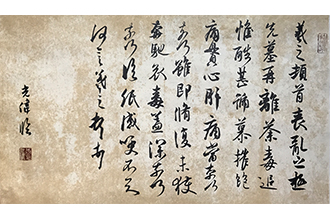 羲之頓首喪亂之極
先墓再離荼毒追
惟酷甚號慕摧絕
痛貫心肝痛當奈何
奈何雖即脩復未獲
奔馳哀毒益深奈何
奈何臨紙感哽不知
何言羲之頓首頓首
臨